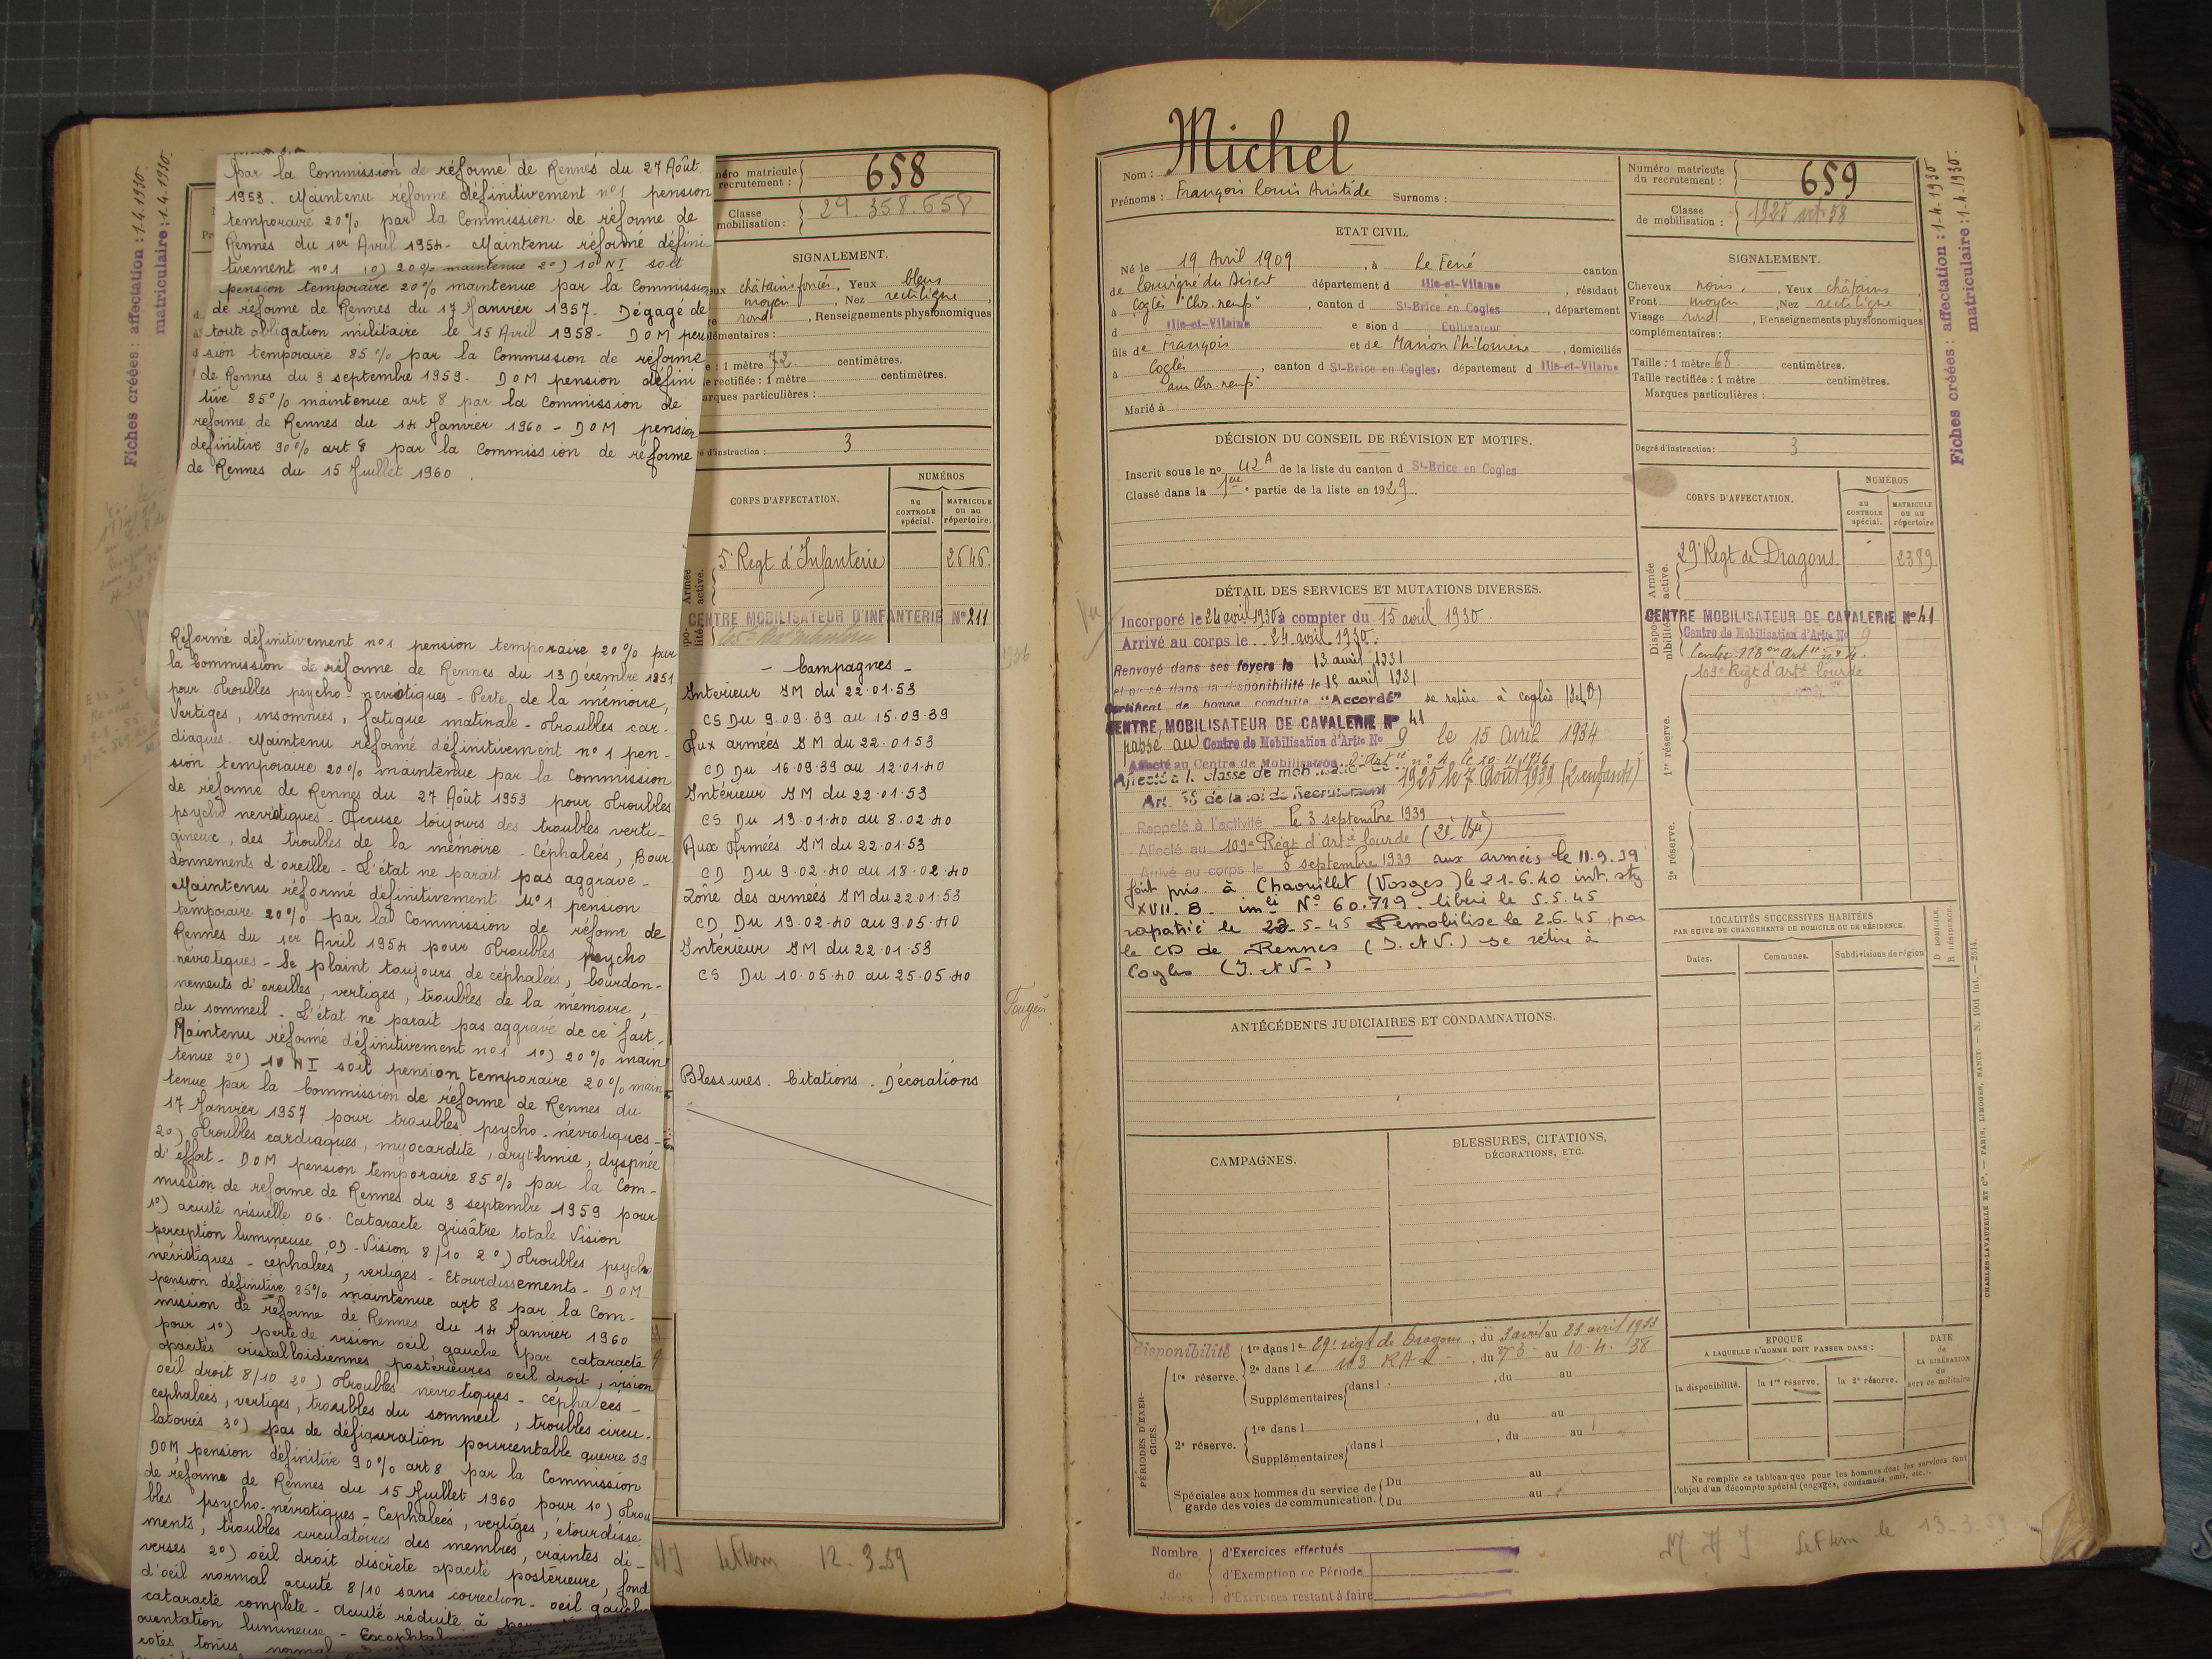 Fiches créées : affectation : 1.4.1930.
matriculaire : 1.4.1930.
par la Commission de réforme de Rennes du 27 Août
1953. Maintenu réforme définitivement n°1 pension
temporaire 20% par la Commission de réforme de
Rennes du 1er Avril 1954- Maintenu réformé défini-
tivement n°1 1°) 20% maintenue 2°) 10 NI soit
pension temporaire 20% maintenue par la Commission
de réforme de Rennes du 17 Janvier 1957. Dégagé de
toute obligation militaire le 15 Avril 1958- DOM pen
sion temporaire 85% par la Commission de réforme
de Rennes du 3 septembre 1959. DOM pension défini
tive 85% maintenue art 8 par la Commission de
réforme de Rennes du 14 Janvier 1960 - DOM pension
définitive 90% art 8 par la Commission de réforme
de Rennes du 15 Juillet 1960.
Réformé définitivement n°1 pension temporaire 20% par
la Commission de réforme de Rennes du 13 Décembre 1951
pour troubles psycho-névrotiques - Perte de la mémoire,
Vertiges, insomnies, fatigue matinale - troubles car-
diaques. Maintenu réformé définitivement n°1 pen-
sion temporaire 20% maintenue par la Commission
de réforme de Rennes du 27 Août 1953 pour troubles
psycho nevrotiques - Accuse toujours des troubles verti-
gineux, des troubles de la mémoire - Céphaleés, Bour
donnements d'oreille - L'état ne parait pas aggravé -
Maintenu réformé définitivement N°1 pension
temporaire 20% par la Commission de réforme de
Rennes du 1er Avril 1954 pour troubles psycho
névrotiques - Se plaint toujours de céphaleés, bourdon-
nements d'oreilles, vertiges, troubles de la mémoire,
du sommeil - L'état ne parait pas aggravé de ce fait.
Maintenu réformé définitivement n°1 1°) 20% main
tenue 2°) 10 NI soit pension temporaire 20% main
tenue par la Commission de réforme de Rennes du
17 Janvier 1957 pour troubles psycho-névrotiques -
2°) troubles cardiaques, myocardite, arythmie, dyspnée
d'effort - DOM pension temporaire 85% par la Com-
mission de réforme de Rennes du 3 septembre 1959 pour
1°) acuité visuelle OG. Cataracte grisâtre totale Vision
perception lumineuse OD - Vision 8/10 2°) troubles psycho
névrotiques - céphaleés, vertiges - Etourdissements - DOM
pension définitive 85% maintenue art 8 par la Com-
mission de réforme de Rennes du 14 Janvier 1960
pour 1°) perte de vision oeil gauche par cataracte
opacités cristalloïdiennes postérieures oeil droit, vision
oeil droit 8/10 2°) troubles névrotiques - céphaleés -
céphaleés, vertiges, troubles du sommeil, troubles circu-
latoires 3°) pas de défiguration pourcentable guerre 39
DOM pension définitive 90% art 8 par la Commission
de réforme de Rennes du 15 Juillet 1960 pour 1°) trou
bles psycho-névrotiques - Céphaleés, vertiges, étourdisse
ments, troubles circulatoires des membres, craintes di-
verses 2°) oeil droit discrète opacité postérieure, fond
d'oeil normal acuité 8/10 sans correction - oeil gauche
cataracte complète - acuité réduite à
orientation lumineuse -
cotés, tonus normal
néro matricule
recrutement :
658
Classe
mobilisation :
29.358.658
SIGNALEMENT.
châtains foncés, Yeux bleus
moyen, Nez rectiligne
rond, Renseignements physionomiques
lémentaires :
1 mètre 72 centimètres.
rectifiée : 1 mètre centimètres.
arques particulières :
d'instruction : 3
CORPS D'AFFECTATION.
NUMÉROS
au CONTROLE spécial.
MATRICULE ou au répertoire.
Armée active.
5e Regt d'Infanterie 2646.
CENTRE MOBILISATEUR D'INFANTERIE N° 211
- Campagnes -
Intérieur IM du 22.01.53
CS Du 9.09.39 au 15.09.39
Aux armées IM du 22.01.53
CD Du 16.09.39 au 12.01.40
Intérieur IM du 22.01.53
CS Du 13.01.40 au 8.02.40
Aux Armées IM du 22.01.53
CD Du 9.02.40 au 18.02.40
Zône des armées IM du 22.01.53
CD Du 19.02.40 au 9.05.40
Intérieur IM du 22.01.53
CS Du 10.05.40 au 25.05.40
Blessures. Citations. Décorations
12-3.59
1936
Nom : Michel
Prénoms : François Louis Aristide Surnoms :
ETAT CIVIL.
Né le 19 Avril 1909, à Le Ferré canton
de Louvigné du Désert département d Ille-et-Vilaine, résidant
à Coglès "Chs. reuf", canton d St-Brice en Cogles, département
d Ille-et-Vilaine e sion d Cultivateur
fils de François et de Marion Philomène, domiciliés
à Coglès, canton d St-Brice en Cogles, département d Ille-et-Vilaine
Marié à
DÉCISION DU CONSEIL DE RÉVISION ET MOTIFS.
Inscrit sous le n° 42A de la liste du canton d St-Brice en Cogles
Classé dans la 1re partie de la liste en 1929.
DÉTAIL DES SERVICES ET MUTATIONS DIVERSES.
Incorporé le 24 avril 1930 à compter du 15 avril 1930.
Arrivé au corps le 24 avril 1930.
Renvoyé dans ses foyers le 13 avril 1931
et passé dans la disponibilité le 15 avril 1931
Certificat de bonne conduite "Accordé" se retire à Coglès
CENTRE MOBILISATEUR DE CAVALERIE N° 41
passé au Centre de Mobilisation d'Artie N° 9 le 15 Avril 1934
Affecté au Centre de Mobilisation d'Artie n° 4 le 10-11-1936
Affecté à la classe de mobilisation de 1925 le 7 Août 1939 (2 enfants)
Art. 58 de la loi de Recrutement
Rappelé à l'activité le 3 septembre 1939
Affecté au 109e Régt d'Artie lourde
Arrivé au corps le 5 septembre 1939 aux armées le 11.9.39
fait pris. à Chaouillet (Vosges) le 21-6.40 int. stg
XVII. B. imle N° 60.719. libéré le 5.5.45
rapatrié le 22-5-45 Démobilisé le 2-6.45 par
le CD de Rennes (I. et V.) se retire à
Cogles (I. et V.)
ANTÉCÉDENTS JUDICIAIRES ET CONDAMNATIONS.
CAMPAGNES.
BLESSURES, CITATIONS,
DÉCORATIONS, ETC.
PÉRIODES D'EXERCICES.
disponibilité
1re réserve.
1re dans le 29e régt de Dragons, du 3 avril au 23 avril 1933
2e dans le 103 RAL, du au 10-4-38
Supplémentaires dans l , du au
2e réserve.
1re dans l , du au
Supplémentaires dans l , du au
Spéciales aux hommes du service de garde des voies de communication. Du au
Du au
Nombre de Jours
d'Exercices effectués
d'Exemption de Période
d'Exercices restant à faire
Numéro matricule
du recrutement :
659
Classe
de mobilisation :
1925 art 58
SIGNALEMENT.
Cheveux noirs, Yeux châtains
Front moyen, Nez rectiligne
Visage rond, Renseignements physionomiques
complémentaires :
Taille : 1 mètre 68 centimètres.
Taille rectifiée : 1 mètre centimètres.
Marques particulières :
Degré d'instruction : 3
CORPS D'AFFECTATION.
NUMÉROS
au CONTROLE spécial.
MATRICULE ou au répertoire
Armée active.
29e Regt de Dragons. 2389
CENTRE MOBILISATEUR DE CAVALERIE N° 41
Disponibilité
Centre de Mobilisation d'Artie N° 9
109e Régt d'Artie lourde
1re réserve.
2e réserve.
LOCALITÉS SUCCESSIVES HABITÉES
PAR SUITE DE CHANGEMENTS DE DOMICILE OU DE RÉSIDENCE.
Dates. Communes. Subdivisions de région
D DOMICILE.
R RÉSIDENCE.
EPOQUE
A LAQUELLE L'HOMME DOIT PASSER DANS :
la disponibilité. la 1re réserve. la 2e réserve.
DATE de LA LIBÉRATION du service militaire
Ne remplir ce tableau que pour les hommes dont les services font
l'objet d'un décompte spécial (engagés, condamnés, omis, etc.).
Fiches créées : affectation : 1-4-1930
matriculaire : 1-4-1930.
CHARLES-LAVAUZELLE ET Cie. — PARIS, LIMOGES, NANCY.
13-3.59